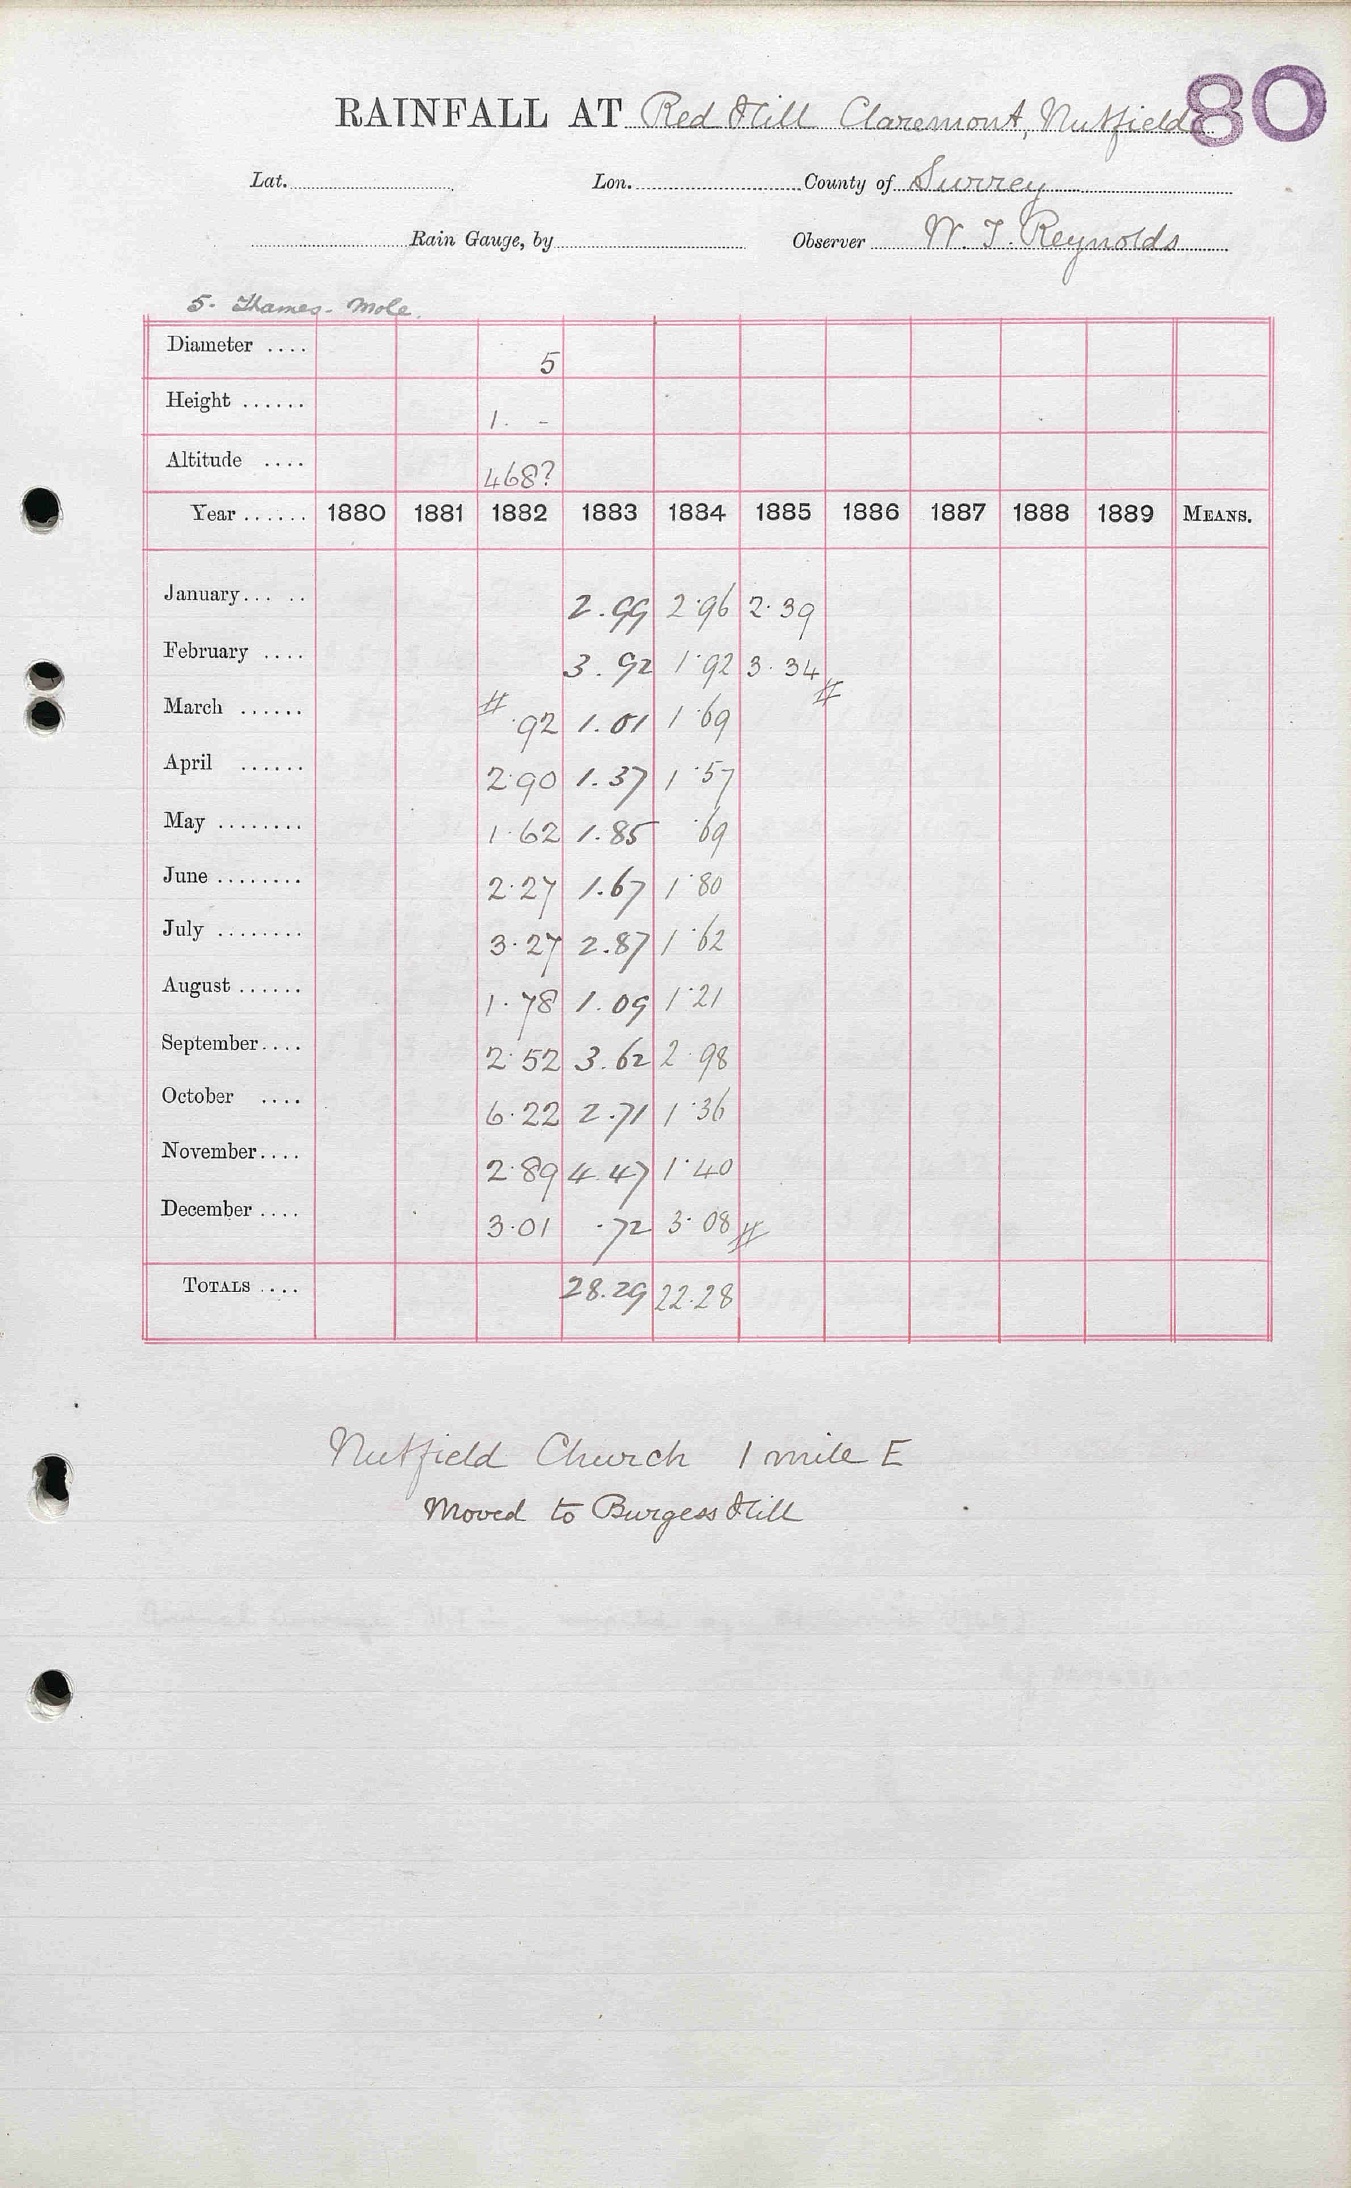 80
RAINFALL AT Red Hill Claremont, Nutfield
Lat. Lon. County of Surrey
Rain Gauge, by Observer W. T. Reynolds
5. Thames. Mole.
Diameter .... 5
Height ...... 1. -
Altitude .... 468?
Year ...... 1880 1881 1882 1883 1884 1885 1886 1887 1888 1889 MEANS.
January... .. 2.99 2.96 2.39
February .... 3.92 1.92 3.34 #
March ...... # .92 1.01 1.69
April ...... 2.90 1.37 1.57
May ........ 1.62 1.85 .69
June ........ 2.27 1.67 1.80
July ........ 3.27 2.87 1.62
August ...... 1.78 1.09 1.21
September.... 2.52 3.62 2.98
October .... 6.22 2.71 1.36
November.... 2.89 4.47 1.40
December .... 3.01 .72 3.08 #
TOTALS .... 28.29 22.28
Nutfield Church 1 mile E
Moved to Burgess Hill